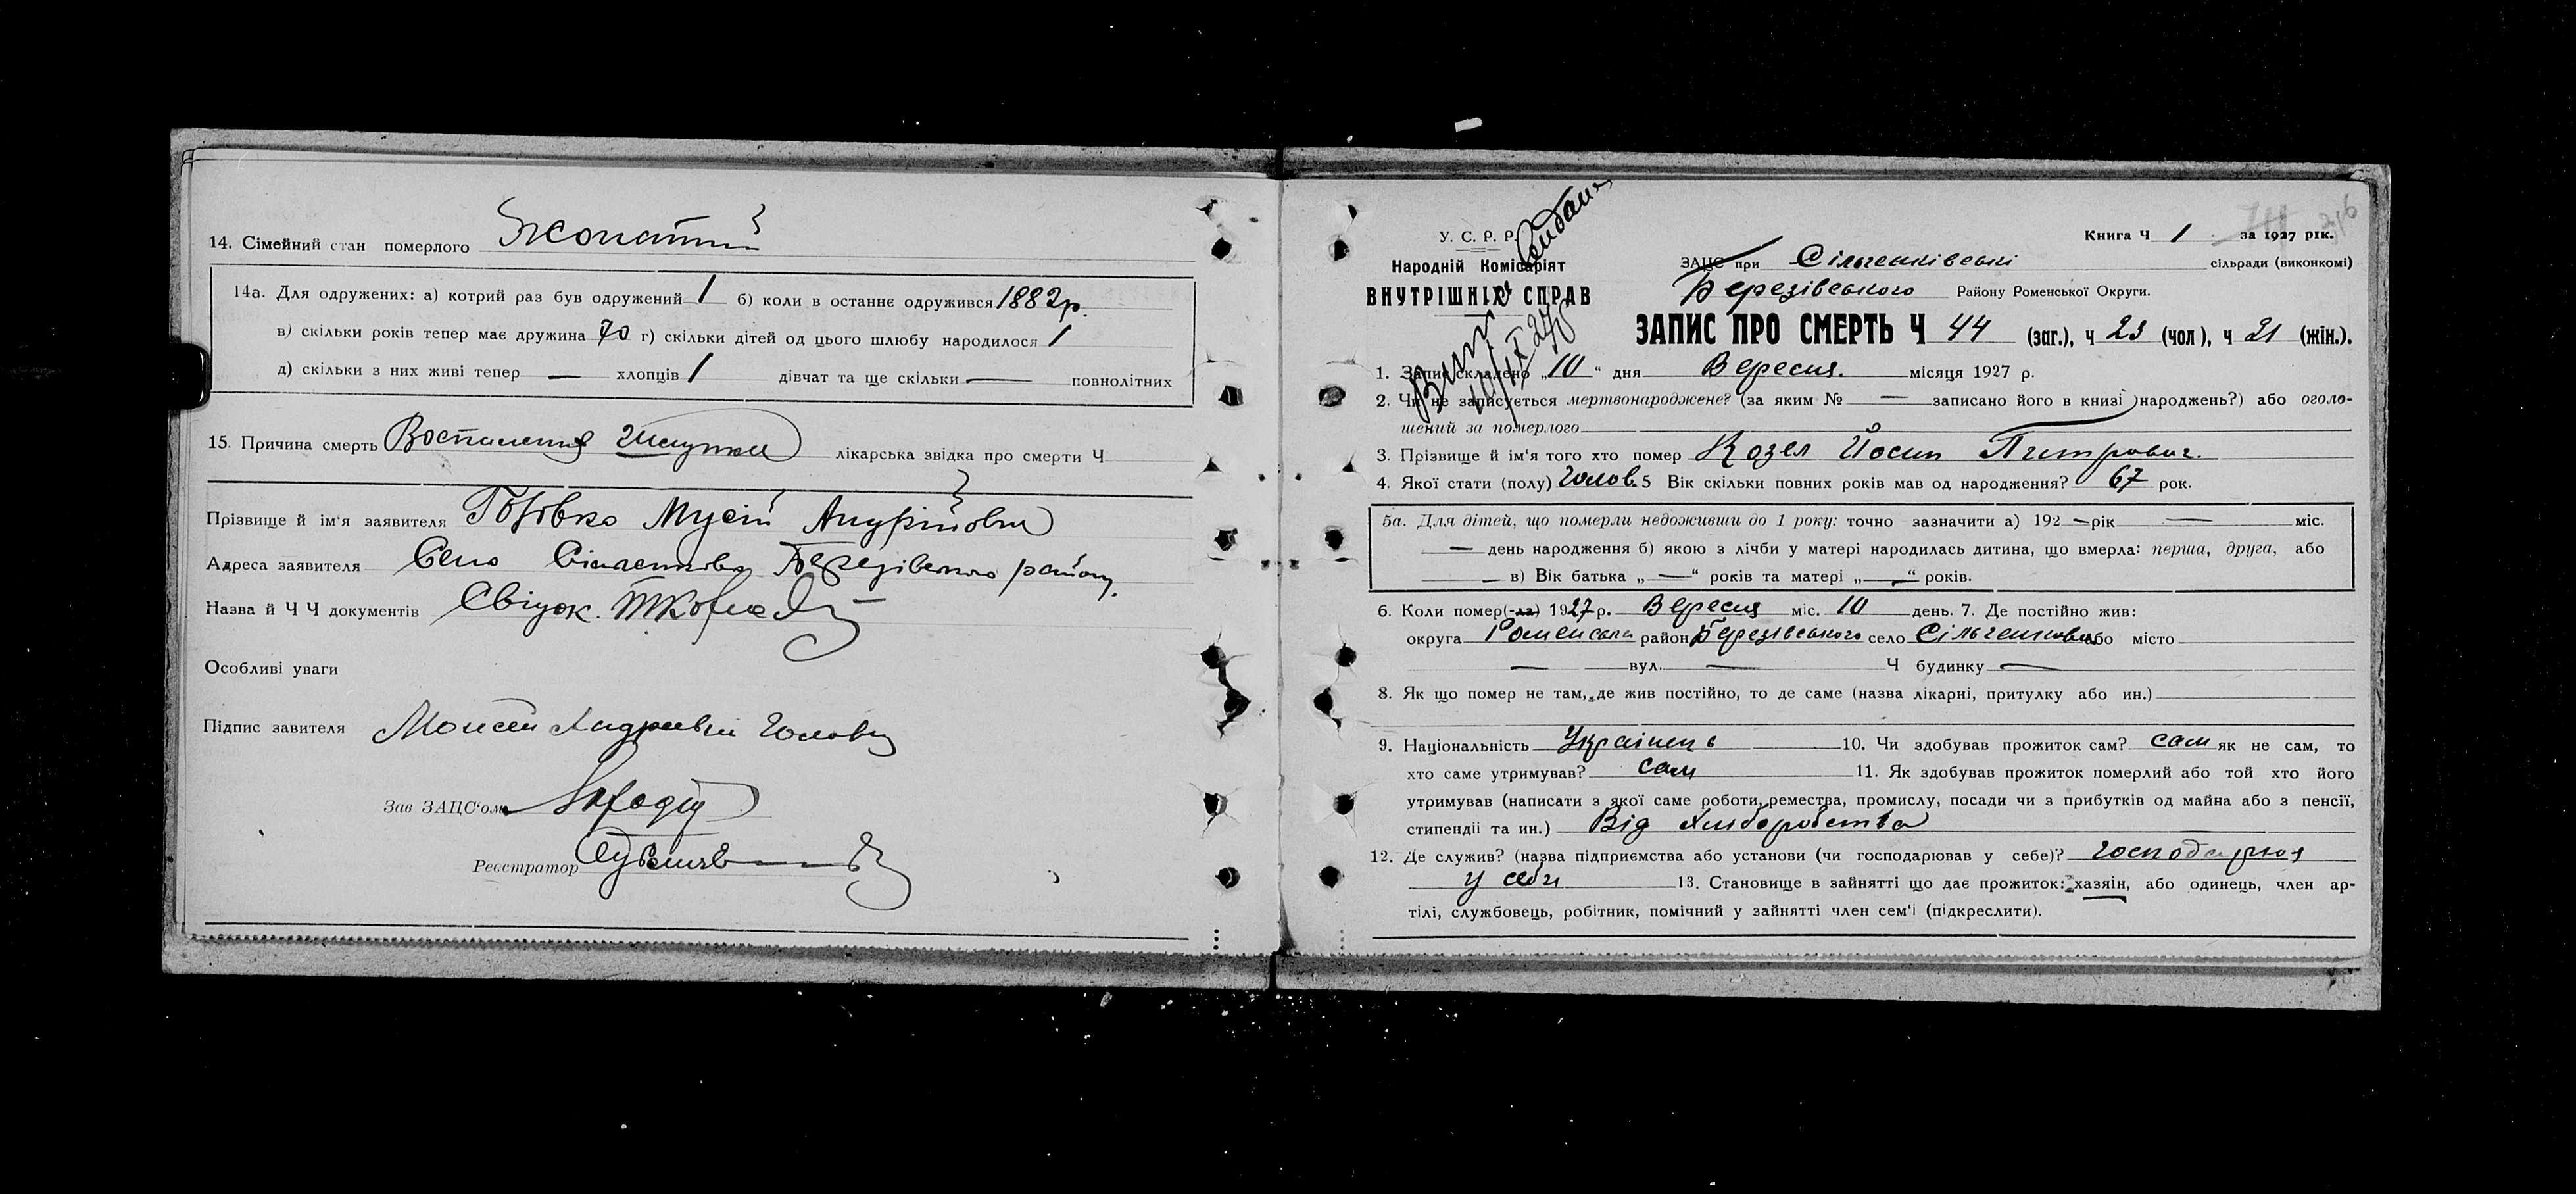 14. Сімейний стан померлого Жонатий
14а. Для одружених: а) котрий раз був одружений 1 б) коли в останнє одружився 1882р.
в) скільки років тепер має дружина 70 г) скільки дітей од цього шлюбу народилося 1
д) скільки з них живі тепер — хлопців 1 дівчат та ще скільки — повнолітних
15. Причина смерть Воспаления лікарська звідка про смерти Ч
Прізвище й ім'я заявителя Мусій Андрійович
Адреса заявителя Село Березівського району.
Назва й Ч Ч документів
Особливі уваги
Підпис завителя Моисей
Зав ЗАЦС'ом
Реєстратор
У. С. Р. Р.
Народній Комісаріят
ВНУТРІШНІХ СПРАВ
Книга Ч 1 за 1927 рік.
ЗАЦС при сільради (виконкомі)
Березівського Району Роменської Округи.
ЗАПИС ПРО СМЕРТЬ Ч 44 (заг.), ч 23 (чол), ч 21 (жін.).
1. Запис складено „10“ дня Вересня. місяця 1927 р.
2. Чи не записується мертвонароджене? (за яким № — записано його в книзі народжень?) або оголо-
шений за померлого
3. Прізвище й ім'я того хто помер Козел Йосип Питрович.
4. Якої стати (полу) Чолов. 5 Вік скільки повних років мав од народження? 67 рок.
5а. Для дітей, що померли недоживши до 1 року: точно зазначити а) 192 — рік — міс.
— день народження б) якою з лічби у матері народилась дитина, що вмерла: перша, друга, або
— в) Вік батька „—“ років та матері „—“ років.
6. Коли помер(-ла) 1927 р. Вересня міс. 10 день. 7. Де постійно жив:
округа Роменська район Березівського село або місто
— вул. — Ч будинку —
8. Як що помер не там, де жив постійно, то де саме (назва лікарні, притулку або ин.)
9. Національність Українець 10. Чи здобував прожиток сам? сам як не сам, то
хто саме утримував? сам 11. Як здобував прожиток померлий або той хто його
утримував (написати з якої саме роботи, ремества, промислу, посади чи з прибутків од майна або з пенсії,
стипендії та ин.) Від хлиборобства
12. Де служив? (назва підприємства або установи (чи господарював у себе)?
у себи 13. Становище в зайнятті що дає прожиток: хазяїн, або одинець, член ар-
тілі, службовець, робітник, помічний у зайнятті член сем'ї (підкреслити).